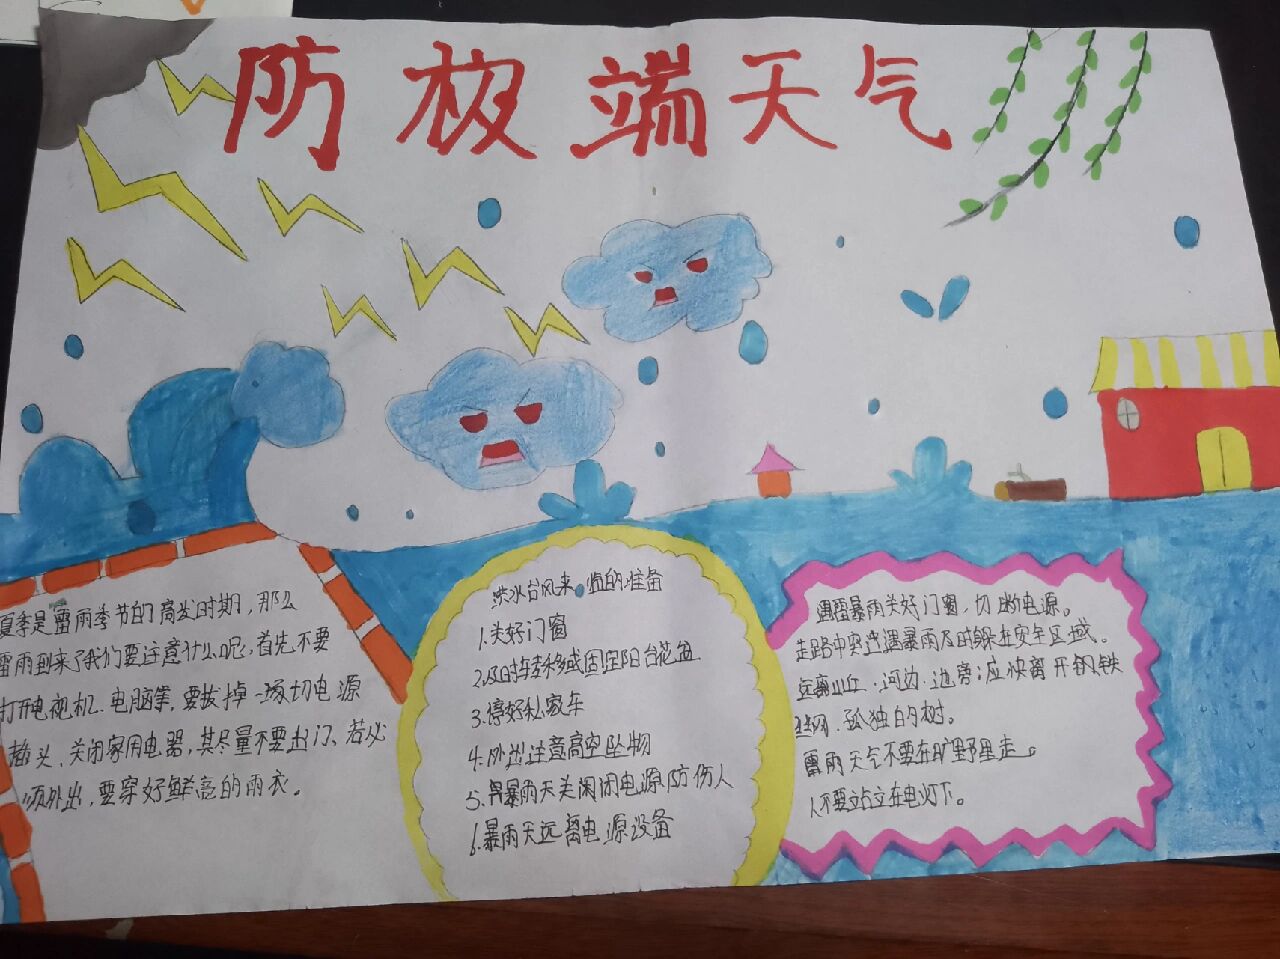 防极端天气
夏季是雷雨季节的高发时期，那么
雷雨到来了我们要注意什么呢，首先不要
打开电视机、电脑等，要拔掉一场切电源
插头、关闭家用电器，其尽量不要出门、若必
须外出，要穿好鲜亮的雨衣。
洪水台风来 的准备
1.关好门窗
2.及时转移或固定阳台花盆
3.停好私家车
4.外出注意高空坠物
5.暴雨天关闭电源防伤人
6.暴雨天远离电源设备
遇雷暴雨关好门窗，切断电源。
走路中突遭遇暴雨及时躲在安全区域。
远离山丘、河边、边旁；应快离开钢铁
孤独的树。
雷雨天气不要在旷野里走。
人不要站立在电灯下。